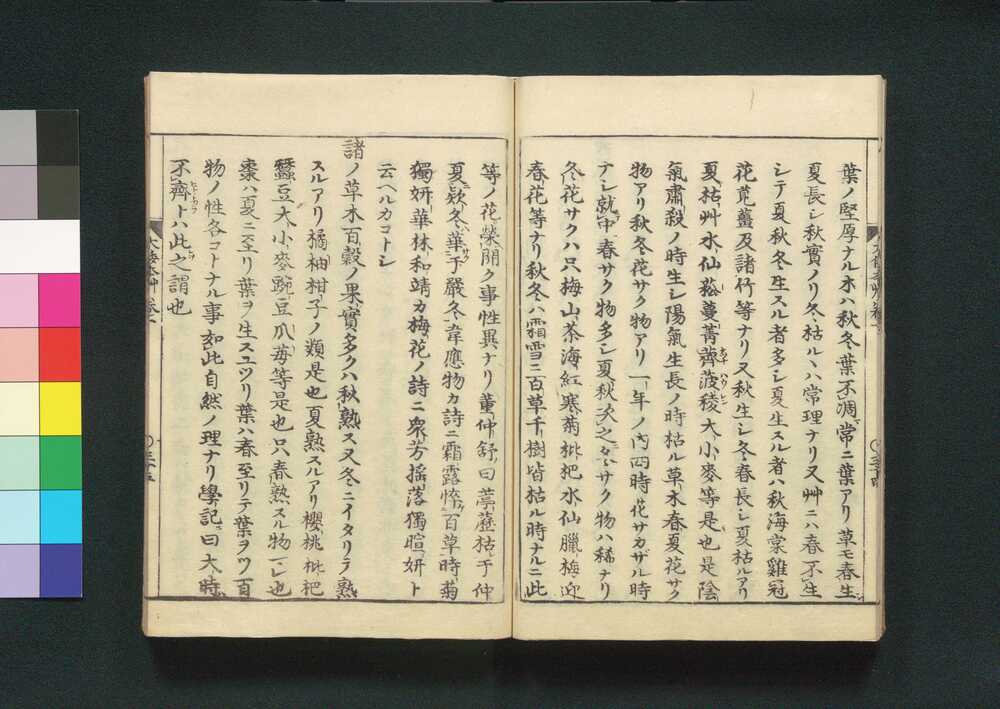 葉ノ堅厚ナル木ハ秋冬葉不凋常ニ葉アリ草モ春生シ
夏長シ秋實ノリ冬枯ルヽハ常理ナリ又艸ニハ春不生
シテ夏秋冬生スル者多シ夏生スル者ハ秋海棠雞冠
花莧薑及諸竹等ナリ又秋生シ冬春長シ夏枯ルアリ
夏枯艸水仙菘蔓菁薺菠薐大小麥等是也是陰
氣肅殺ノ時生シ陽氣生長ノ時枯ル草木春夏花サク
物アリ秋冬花サク物アリ一年ノ内四時花サカザル時
ナシ就中春サク物多シ夏秋次之冬サク物ハ稀ナリ
冬花サクハ只梅山茶海紅寒菊枇杷水仙臘梅迎
春花等ナリ秋冬ハ霜雪ニ百草千樹皆枯ル時ナルニ此
等ノ花榮開ク事性異ナリ董仲舒曰葶藶枯于仲
夏欵冬華于嚴冬韋應物カ詩ニ霜露悴百草時菊
獨妍華林和靖カ梅花ノ詩ニ衆芳揺落獨暄妍ト
云ヘルカコトシ
諸ノ草木百穀ノ果實多クハ秋熟ス又冬ニイタリテ熟
スルアリ橘柚柑子ノ類是也夏熟スルアリ櫻桃枇杷
蠶豆大小麥豌豆瓜苺等是也只春熟スル物ナシ也
棗ハ夏ニ至リ葉ヲ生スユツリ葉ハ春至リテ葉ヲツ百
物ノ性各コトナル事如此自然ノ理ナリ學記曰大時
不齊トハ此之謂也